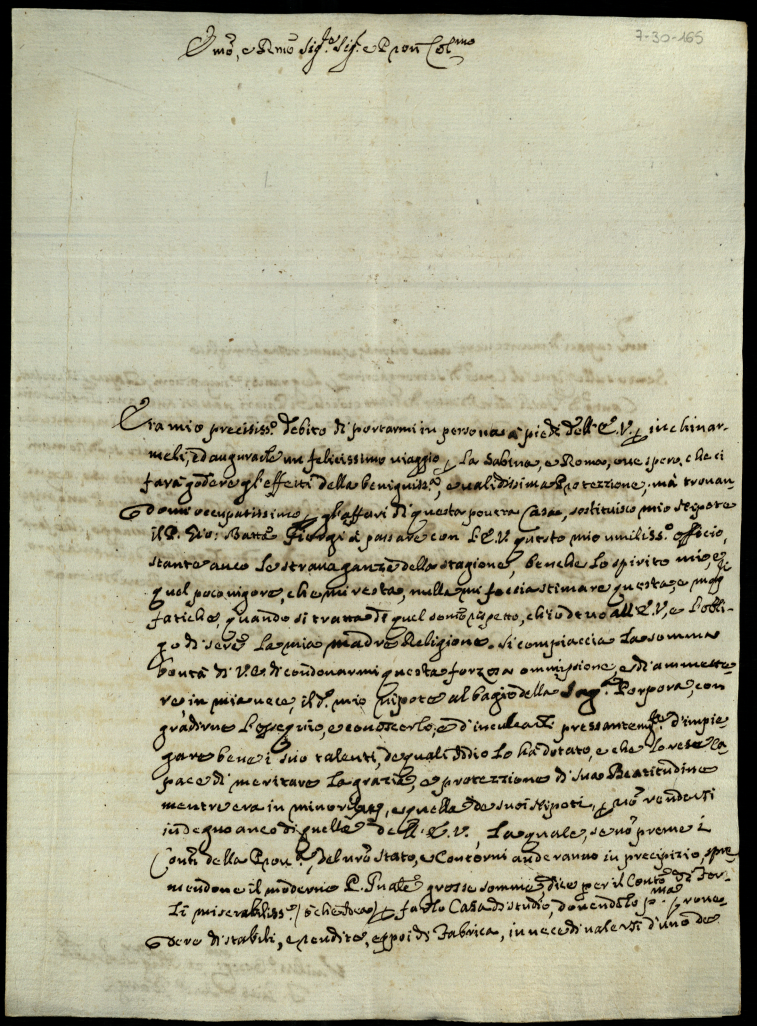 7-30-165
Em̃o, e Rm̃o Sig.re Sig.r e Pron Col.mo
Era mio precisiss.o debito di portarmi in persona a piedi dell'E.V. p inchinar-
meli, ed augurarle un felicissimo viaggio p la Sabina, e Roma, ove spero, che ci
farà godere gl'effetti della benigniss.a, e validissima Protezzione, mà trovan
domi occupatissimo p gl'affari di questa povera Casa, sostituisco mio Nipote
il P. Gio: Batta à passare con l'E.V. questo mio umiliss.o officio,
stante anco le stravaganze della stagione, benche lo spirito mio, e
quel poco vigore, che mi resta, nulla mi faccia stimare questa, e magg.ri
fatiche, quando si tratta di quel sommo rispetto, ch'io devo all'E.V., e l'obli-
go di servire la mia madre Religione. Si compiaccia la somma
bontà di V.E. di condonarmi questa forzosa ommissione, e di ammette-
re in mia vece, il d.o mio Nipote al bagio della Sag.a Porpora, con
gradirne l'ossequio, e conoscerlo, e d'inculcarli pressantem.te d'impie
gare bene i suoi talenti, de quali Iddio lo hà dotato, e che lo rese ca
pace di meritare la grazia, e protezzione di Sua Beatitudine
mentre era in minoribus, e quella de suoi Nipoti, p nõ rendersi
indegno anco di quella dell'E.V., la quale, se nõ preme i
Conti della Prou.a, del nr̃o stato, e Contorni anderanno in precipizio, spre
mendone il moderno P. P̃nale grosse somme, dice per il Conto di For-
lì miserabiliss.o p farlo Casa di studio, dovendolo p.ma prove
dere di stabili, e rendite, e poi di Fabrica, in vece di valersi d'uno de